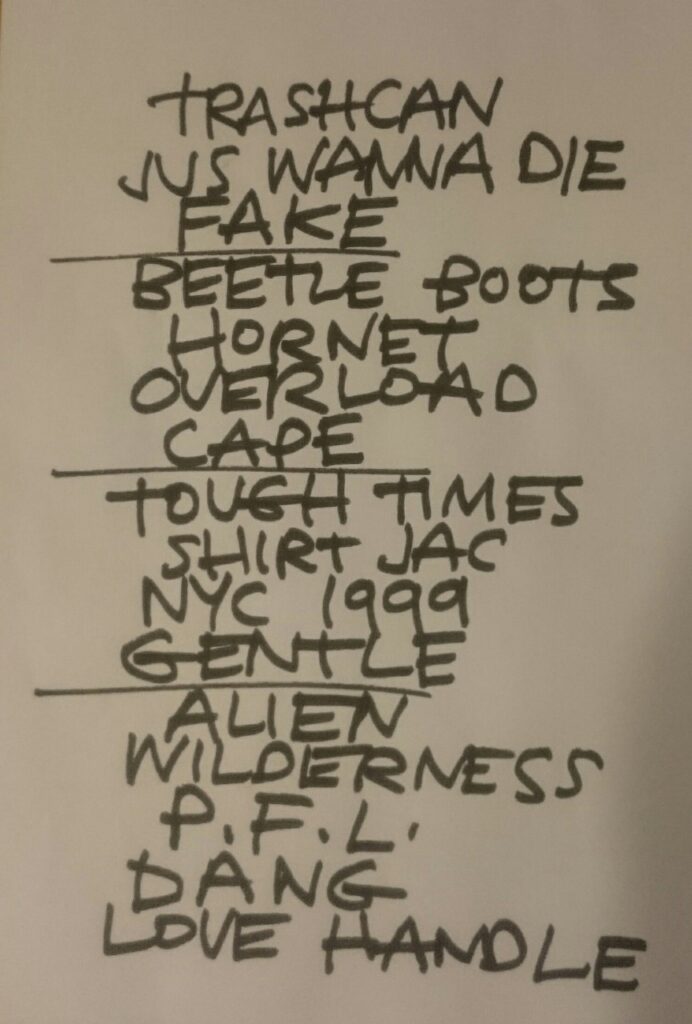 TRASHCAN
JUS WANNA DIE
FAKE
BEETLE BOOTS
HORNET
OVERLOAD
CAPE
TOUGH TIMES
SHIRT JAC
NYC 1999
GENTLE
ALIEN
WILDERNESS
P.F.L.
DANG
LOVE HANDLE